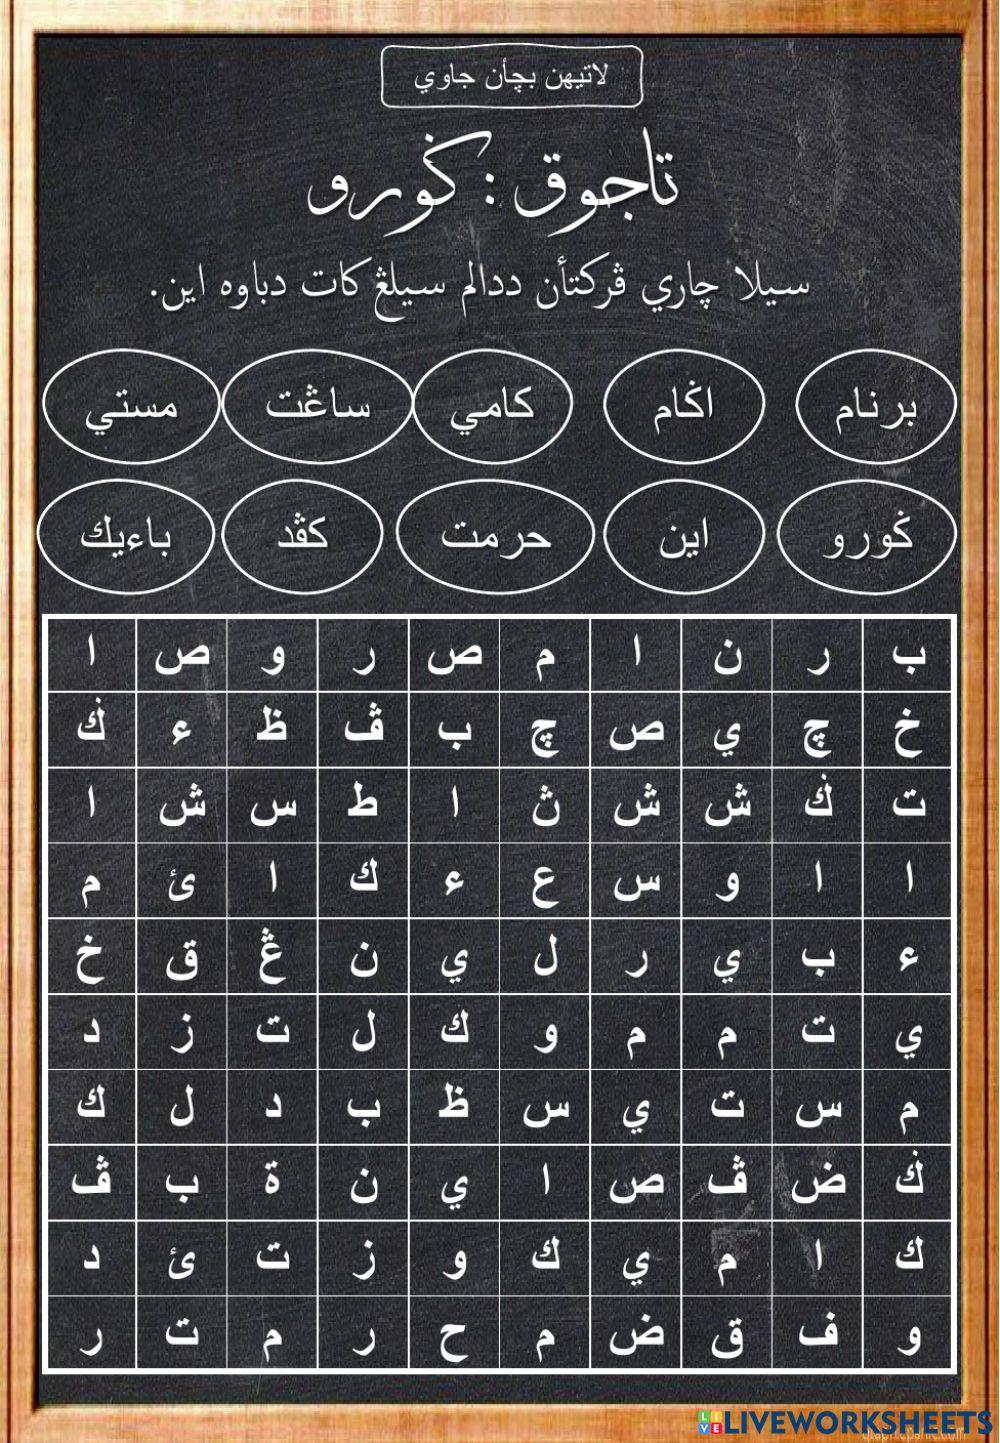 لاتيهن بچأن جاوي
تاجوق : ݢورو
سيلا چاري ڤركتأن ددالم سيلڠ كات دباوه اين.
برنام اݢام كامي ساڠت مستي
ݢورو اين حرمت كڤد باءيك
ب ر ن ا م ص ر و ص ا
خ چ ي ص چ ب ڤ ظ ء ݢ
ت ݢ ش ش ث ا ط س ش ا
ا ا و س ع ء ك ا ئ م
ء ب ي ر ل ي ن ڠ ق خ
ي ت م م و ك ل ت ز د
م س ت ي س ظ ب د ل ك
ݢ ض ڤ ص ا ي ن ة ب ڤ
ك ا م ي ك و ز ت ئ د
و ف ق ض م ح ر م ت ر
LIVEWORKSHEETS